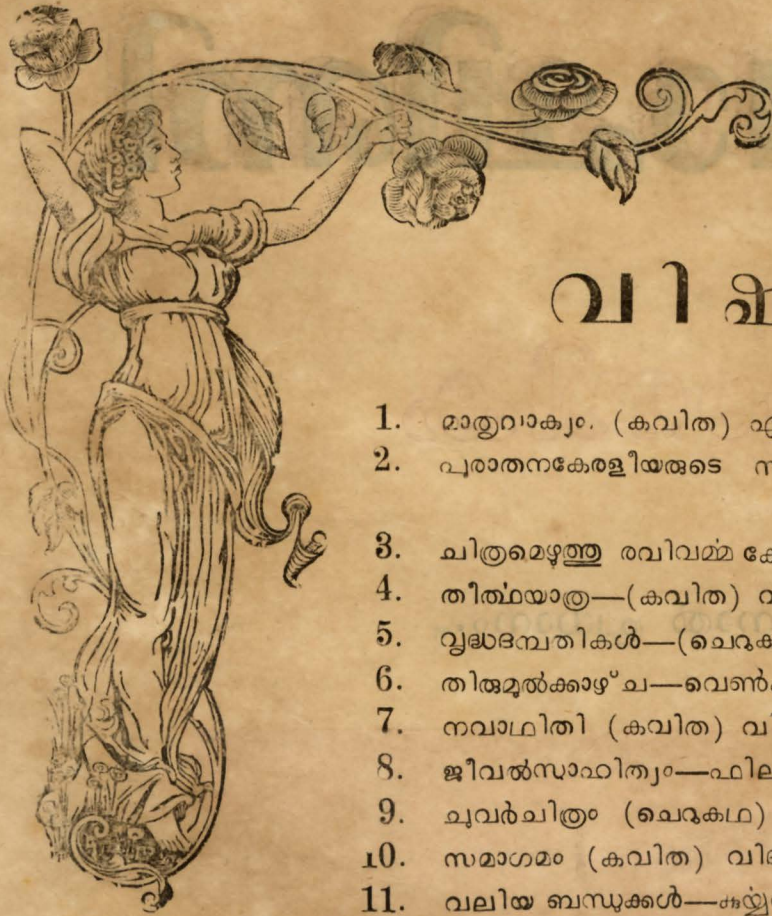 വിഷ
1. മാതൃവാക്യം. (കവിത)
2. പുരാതനകേരളീയരുടെ
3. ചിത്രമെഴുത്തു രവിവൎമ്മ
4. തീൎത്ഥയാത്ര—(കവിത)
5. വൃദ്ധദമ്പതികൾ—
6. തിരുമുൽക്കാഴ്ച—
7. നവാഥിതി (കവിത)
8. ജീവൽസാഹിത്യം—
9. ചുവർചിത്രം (ചെറുകഥ)
10. സമാഗമം (കവിത)
11. വലിയ ബന്ധുക്കൾ—